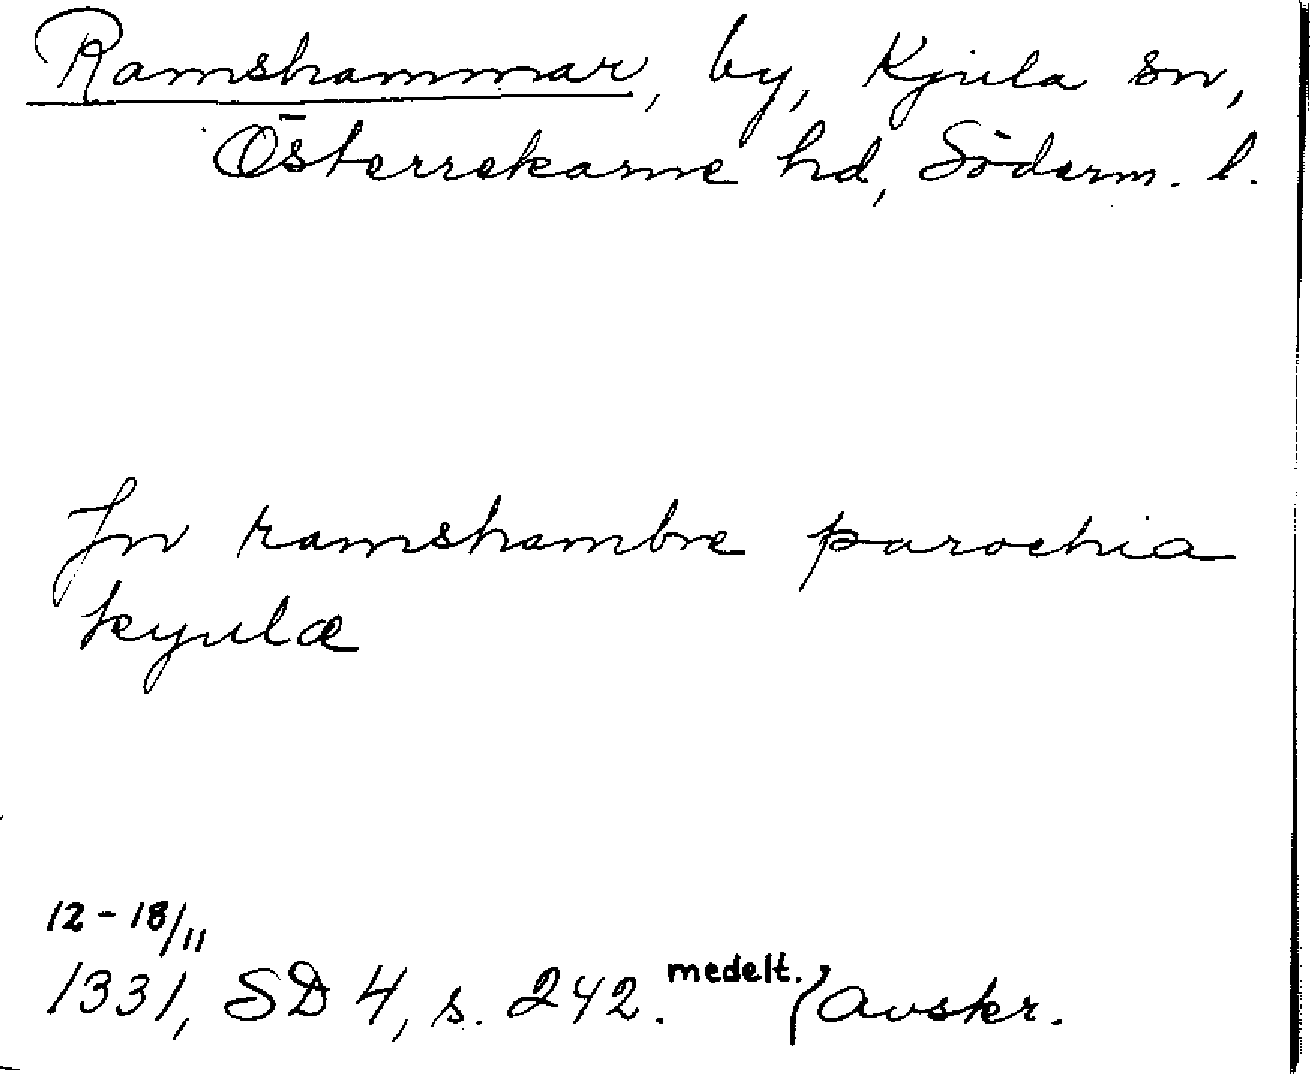 Ramshammar, by, Kjula sn,
Österrekarne hd, Söderm. l.
Jn ramshambre parochia
kyulæ
12-18/11
1331, SD 4, s. 242. medelt. Avskr.